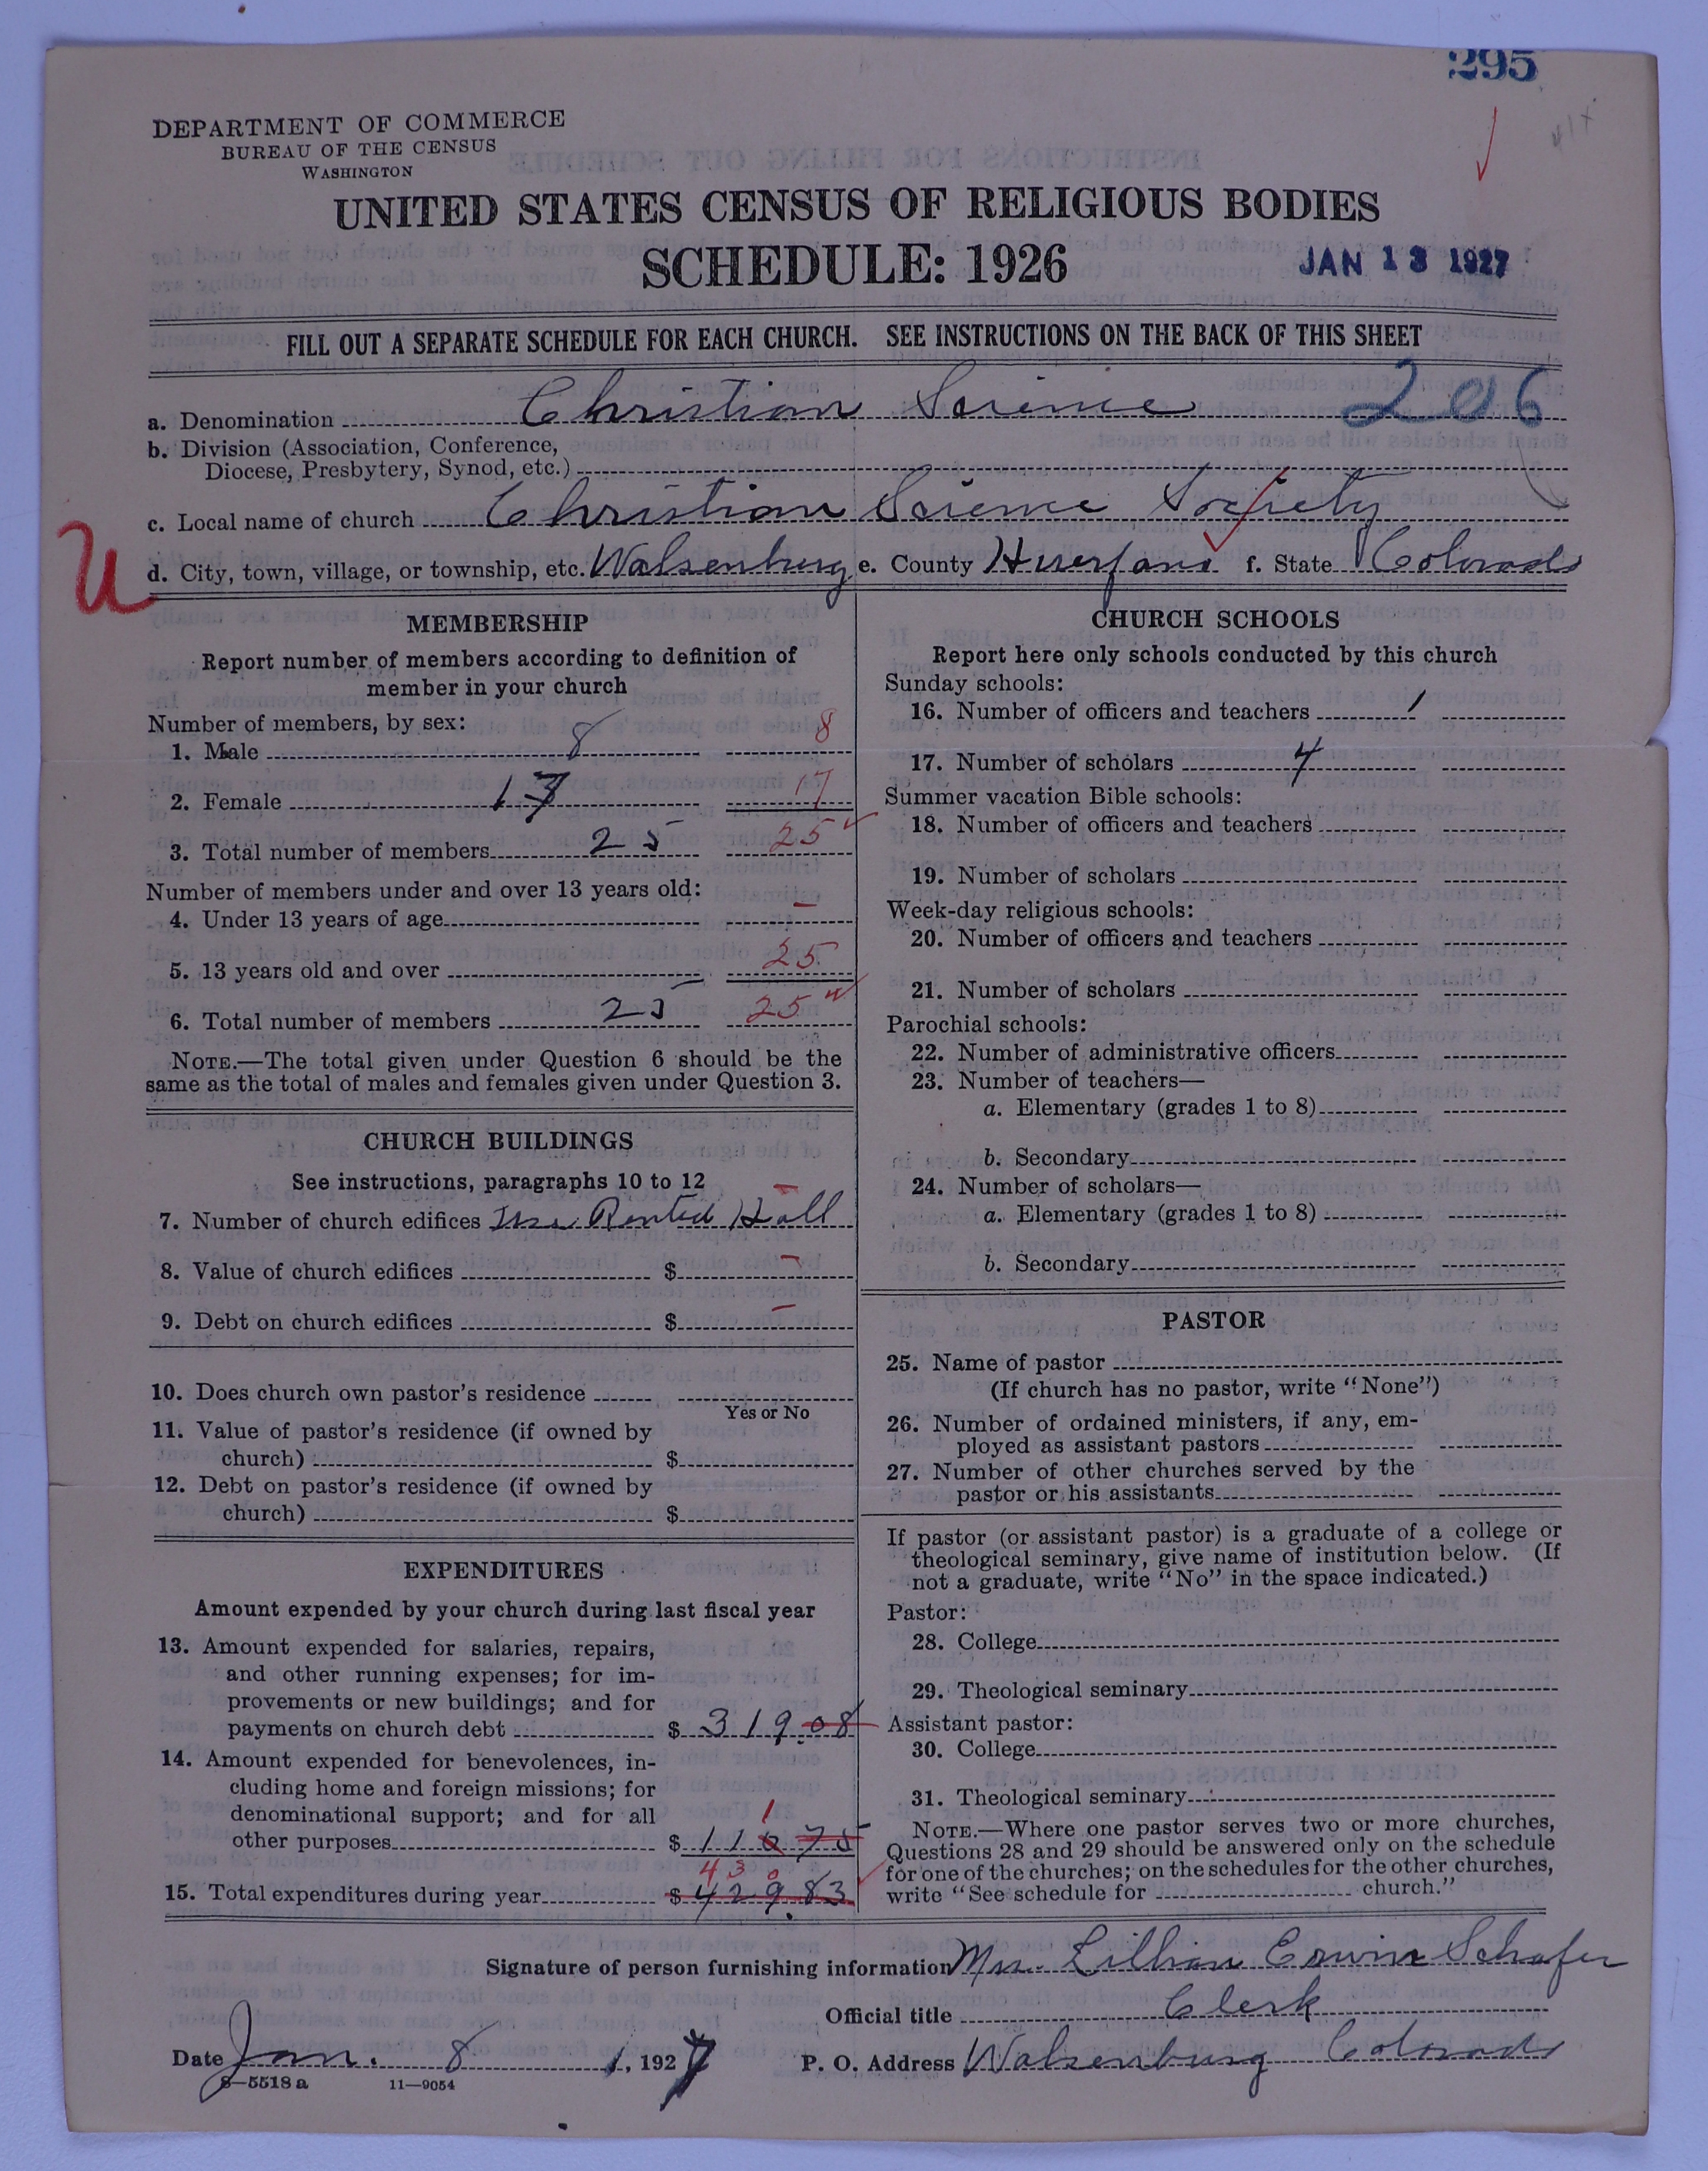 295
DEPARTMENT OF COMMERCE
BUREAU OF THE CENSUS
WASHINGTON
UNITED STATES CENSUS OF RELIGIOUS BODIES
SCHEDULE: 1926
JAN 13 1927
FILL OUT A SEPARATE SCHEDULE FOR EACH CHURCH. SEE INSTRUCTIONS ON THE BACK OF THIS SHEET
a. Denomination Christian Science 206
b. Division (Association, Conference,
Diocese, Presbytery, Synod, etc.)
c. Local name of church Christian Science Society
U
d. City, town, village, or township, etc. Walsenburg e. County Huerfano f. State Colorado
MEMBERSHIP
Report number of members according to definition of
member in your church
Number of members, by sex:
1. Male 8 8
2. Female 17 17
3. Total number of members 25 25
Number of members under and over 13 years old:
4. Under 13 years of age –
5. 13 years old and over 25
6. Total number of members 25 25
NOTE.—The total given under Question 6 should be the
same as the total of males and females given under Question 3.
CHURCH BUILDINGS
See instructions, paragraphs 10 to 12
7. Number of church edifices Use Rented Hall –
8. Value of church edifices $ –
9. Debt on church edifices $ –
10. Does church own pastor's residence
Yes or No
11. Value of pastor's residence (if owned by
church) $
12. Debt on pastor's residence (if owned by
church) $
EXPENDITURES
Amount expended by your church during last fiscal year
13. Amount expended for salaries, repairs,
and other running expenses; for im-
provements or new buildings; and for
payments on church debt $ 319.08
14. Amount expended for benevolences, in-
cluding home and foreign missions; for
denominational support; and for all
1
other purposes $ 110 75
430
15. Total expenditures during year $ 429.83
CHURCH SCHOOLS
Report here only schools conducted by this church
Sunday schools:
16. Number of officers and teachers 1
17. Number of scholars 4
Summer vacation Bible schools:
18. Number of officers and teachers
19. Number of scholars
Week-day religious schools:
20. Number of officers and teachers
21. Number of scholars
Parochial schools:
22. Number of administrative officers
23. Number of teachers—
a. Elementary (grades 1 to 8)
b. Secondary
24. Number of scholars—
a. Elementary (grades 1 to 8)
b. Secondary
PASTOR
25. Name of pastor
(If church has no pastor, write "None")
26. Number of ordained ministers, if any, em-
ployed as assistant pastors
27. Number of other churches served by the
pastor or his assistants
If pastor (or assistant pastor) is a graduate of a college or
theological seminary, give name of institution below. (If
not a graduate, write "No" in the space indicated.)
Pastor:
28. College
29. Theological seminary
Assistant pastor:
30. College
31. Theological seminary
NOTE.—Where one pastor serves two or more churches,
Questions 28 and 29 should be answered only on the schedule
for one of the churches; on the schedules for the other churches,
write "See schedule for church."
Signature of person furnishing information Mrs. Lillian Erwin Schafer
Official title Clerk
Date Jan. 8, 1927 P. O. Address Walsenburg Colorado
8—5518 a 11—9054